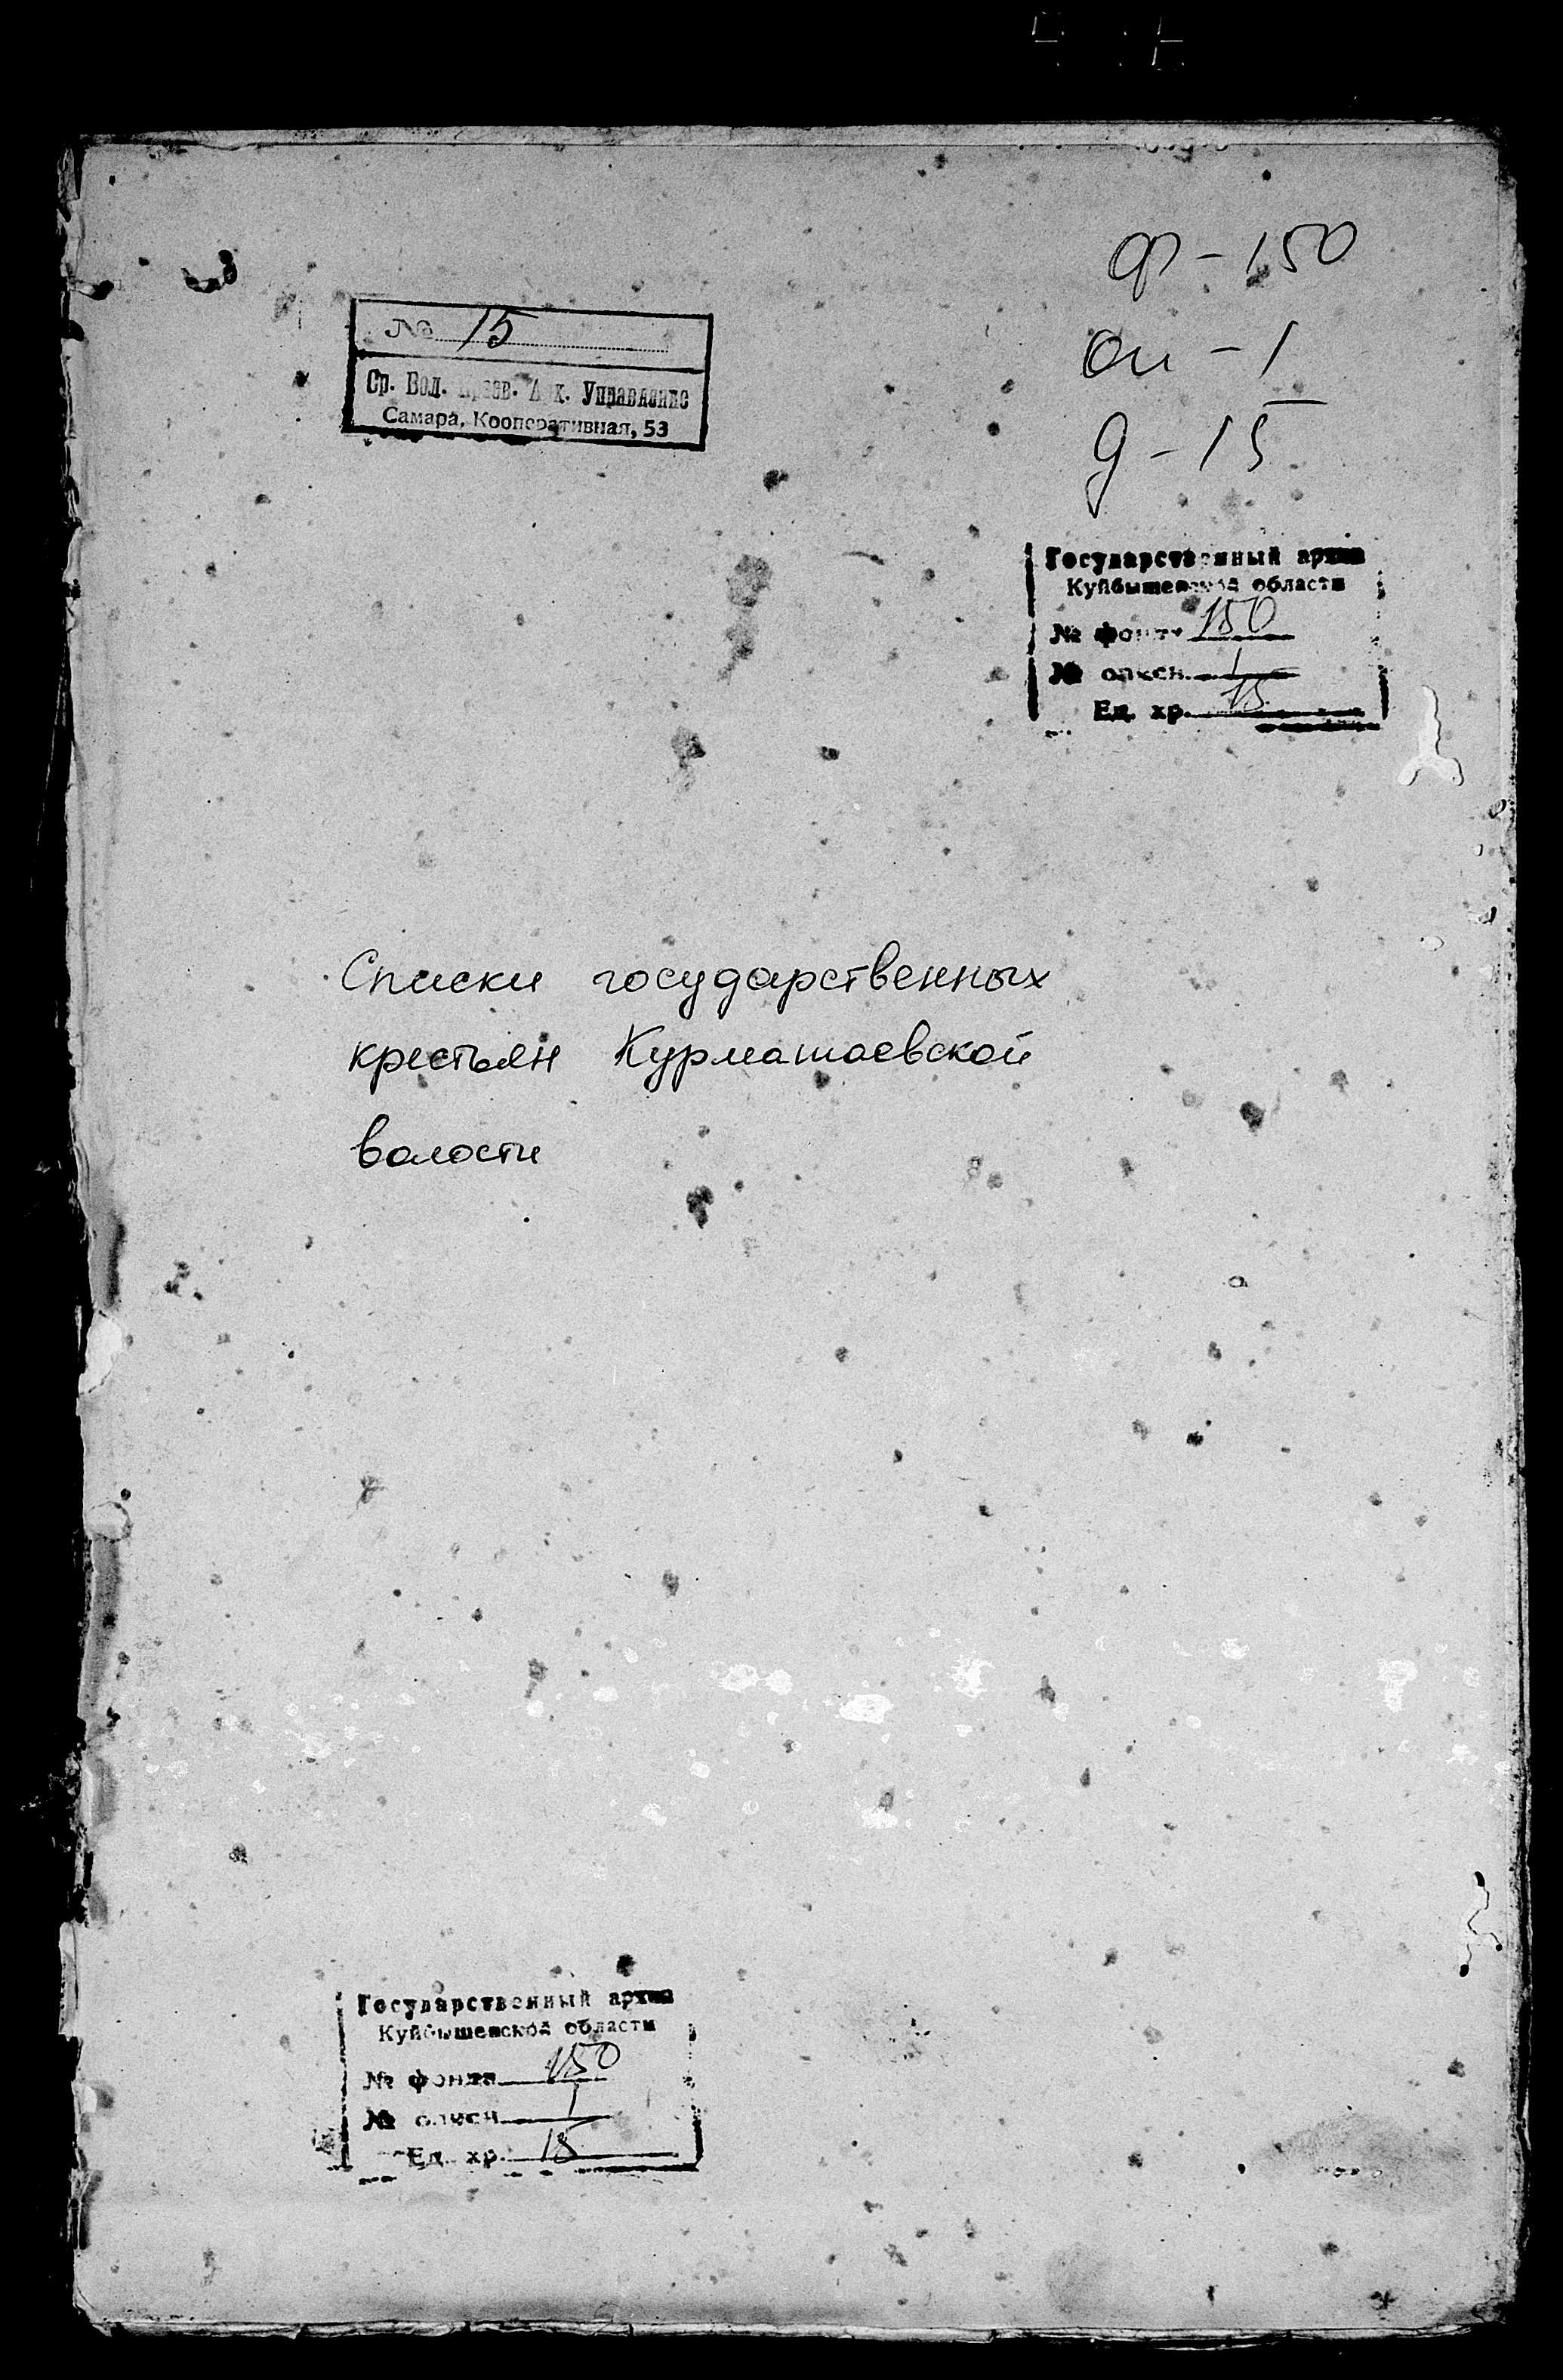 ф - 150
оп - 1
д - 15
№ 15
Ср. Вол. Краев. Арх. Управление
Самара, Кооперативная, 53
Государственный архив
Куйбышевской области
№ фонда 150
№ описи 1
Ед. хр. 15
Списки государственных
крестьян Курматаевской
волости
Государственный архив
Куйбышевской области
№ фонда 150
№ описи 1
Ед. хр. 15